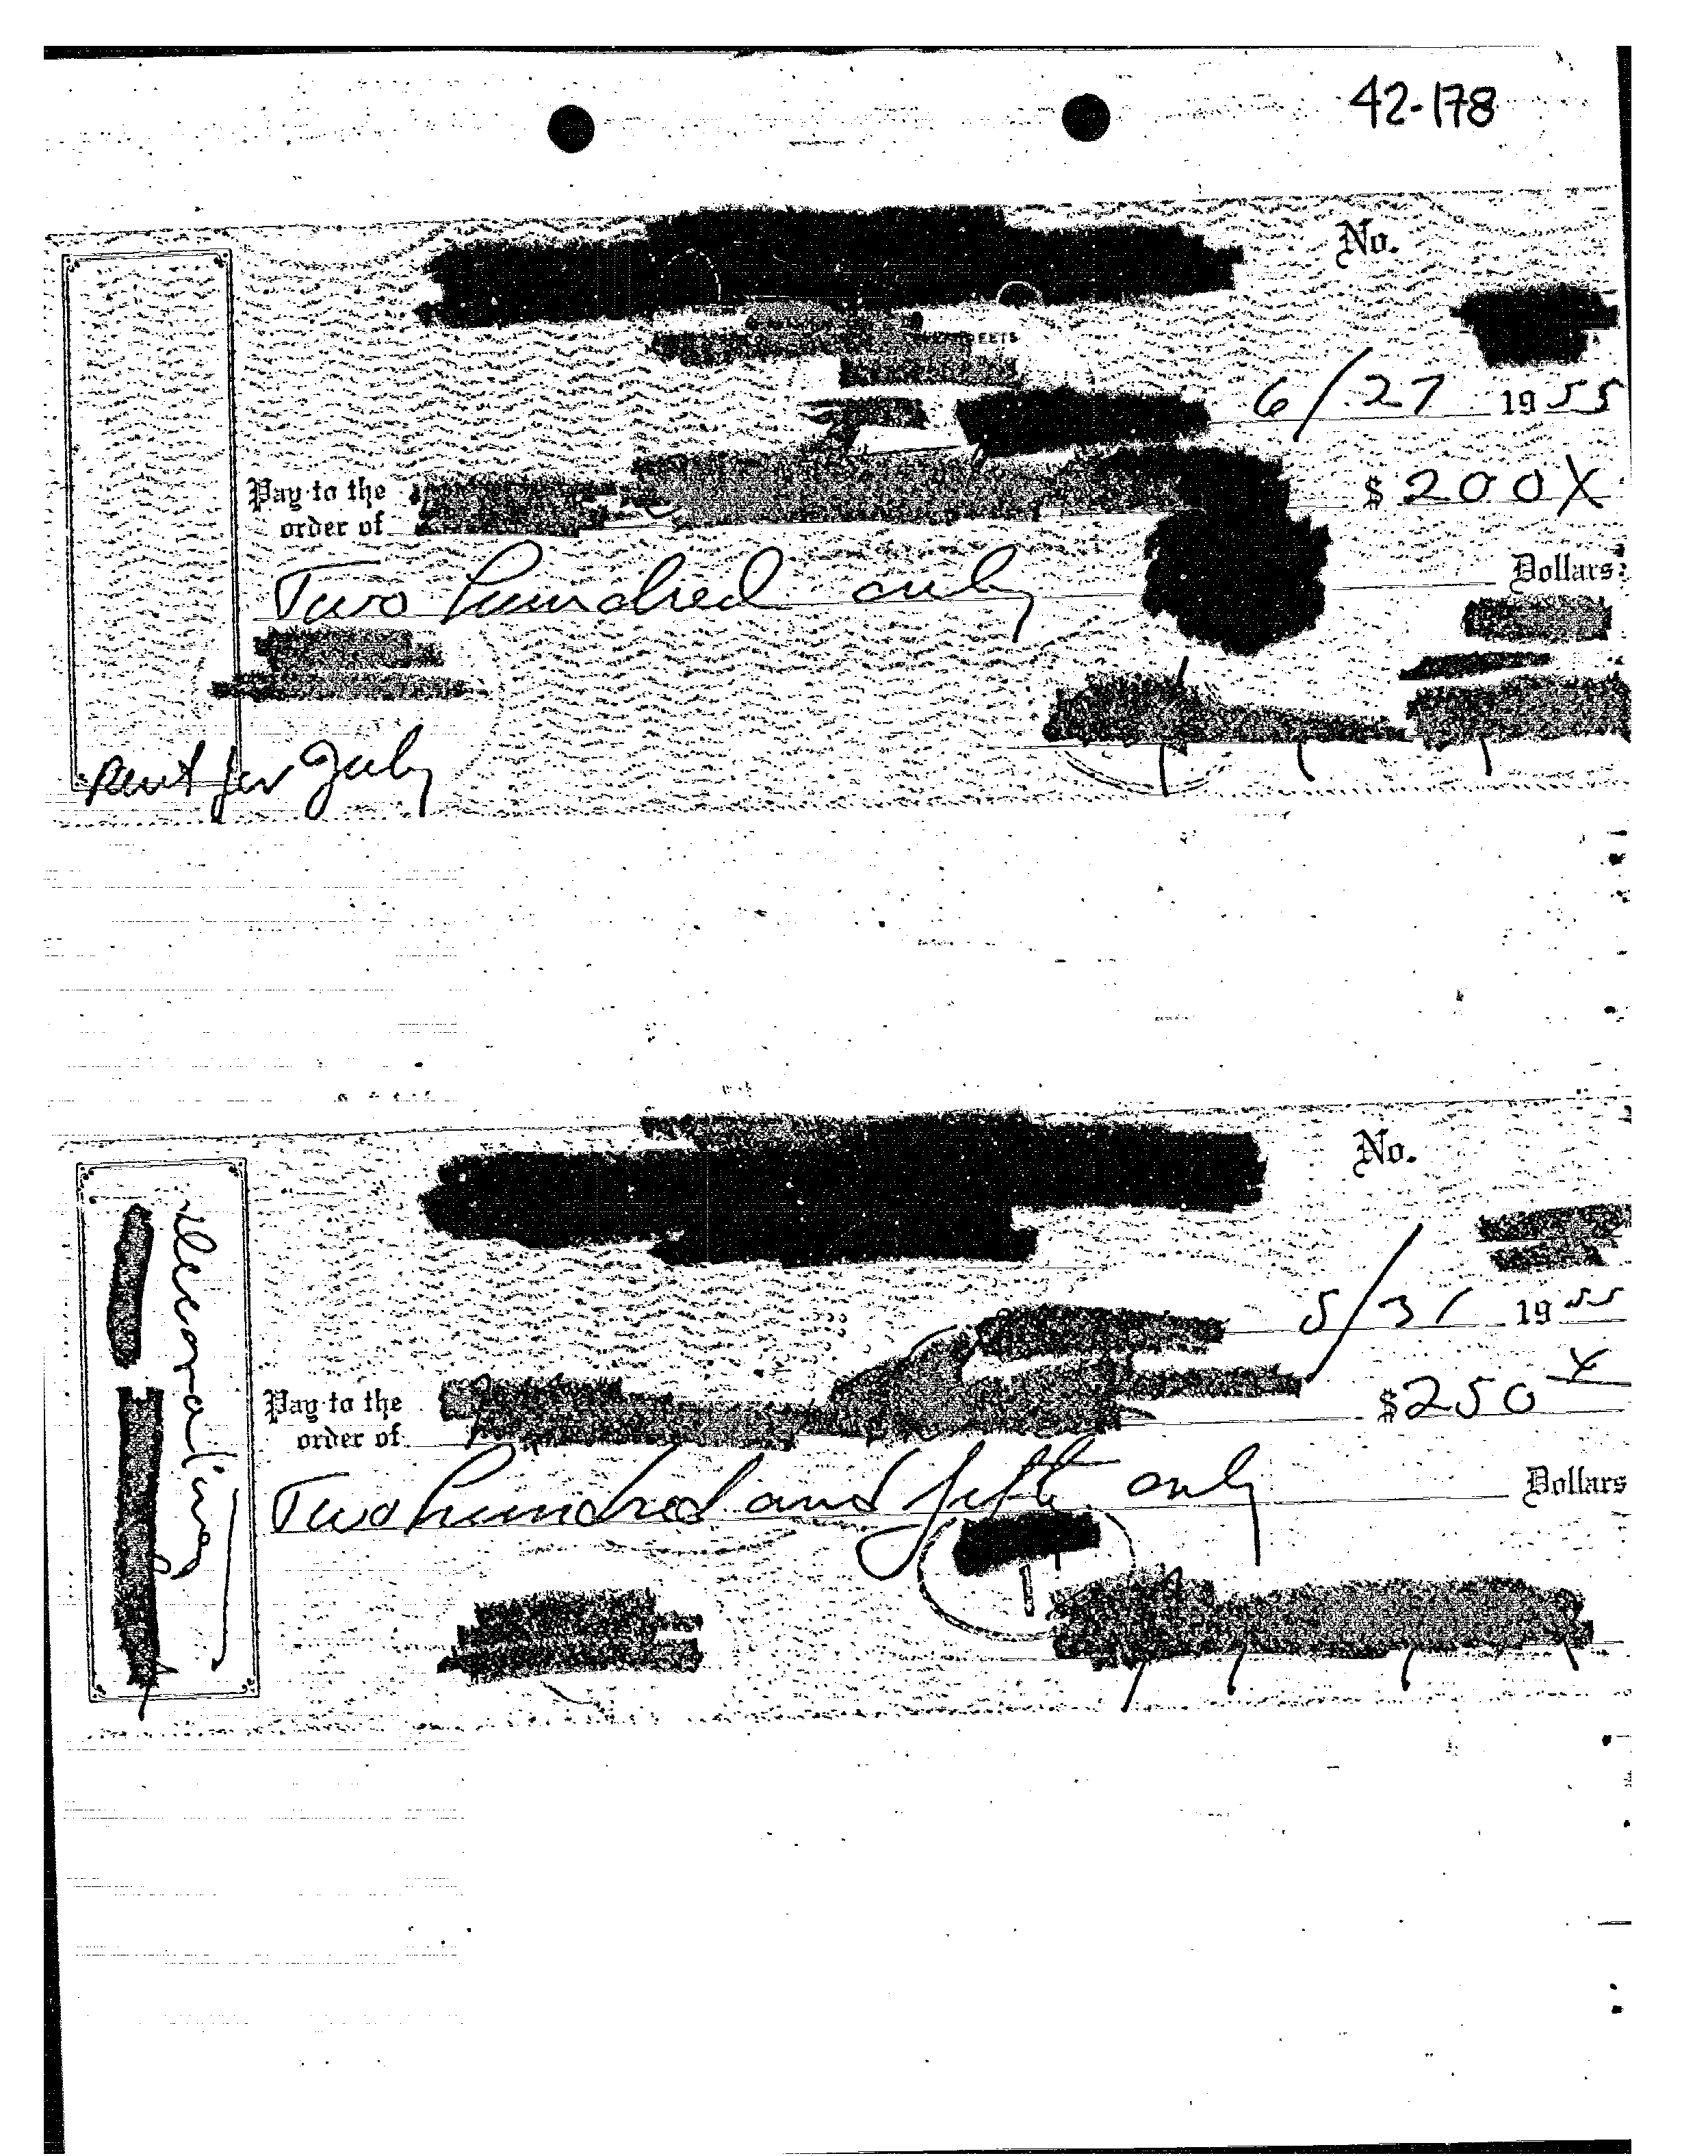 42-178
No.
6/27 1955
Pay to the
order of
$ 200 X
Two hundred only
Dollars
Rent for July
No.
5/31 1955
Pay to the
order of
$250 X
Two hundred and fifty only
Dollars
Decorating